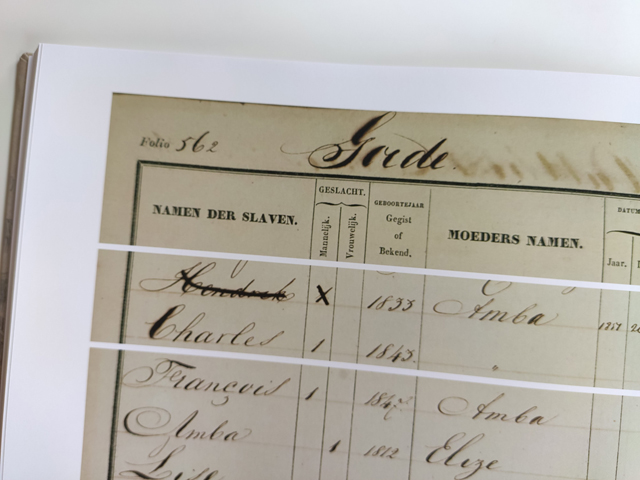 Folio 562
Gorde
NAMEN DER SLAVEN. GESLACHT. Mannelijk. Vrouwelijk. GEBOORTEJAAR Gegist of Bekend. MOEDERS NAMEN. DATUM Jaar.
Hendrik X 1833 Amba
Charles 1 1843 "
François 1 1847 Amba
Amba 1 1812 Elize